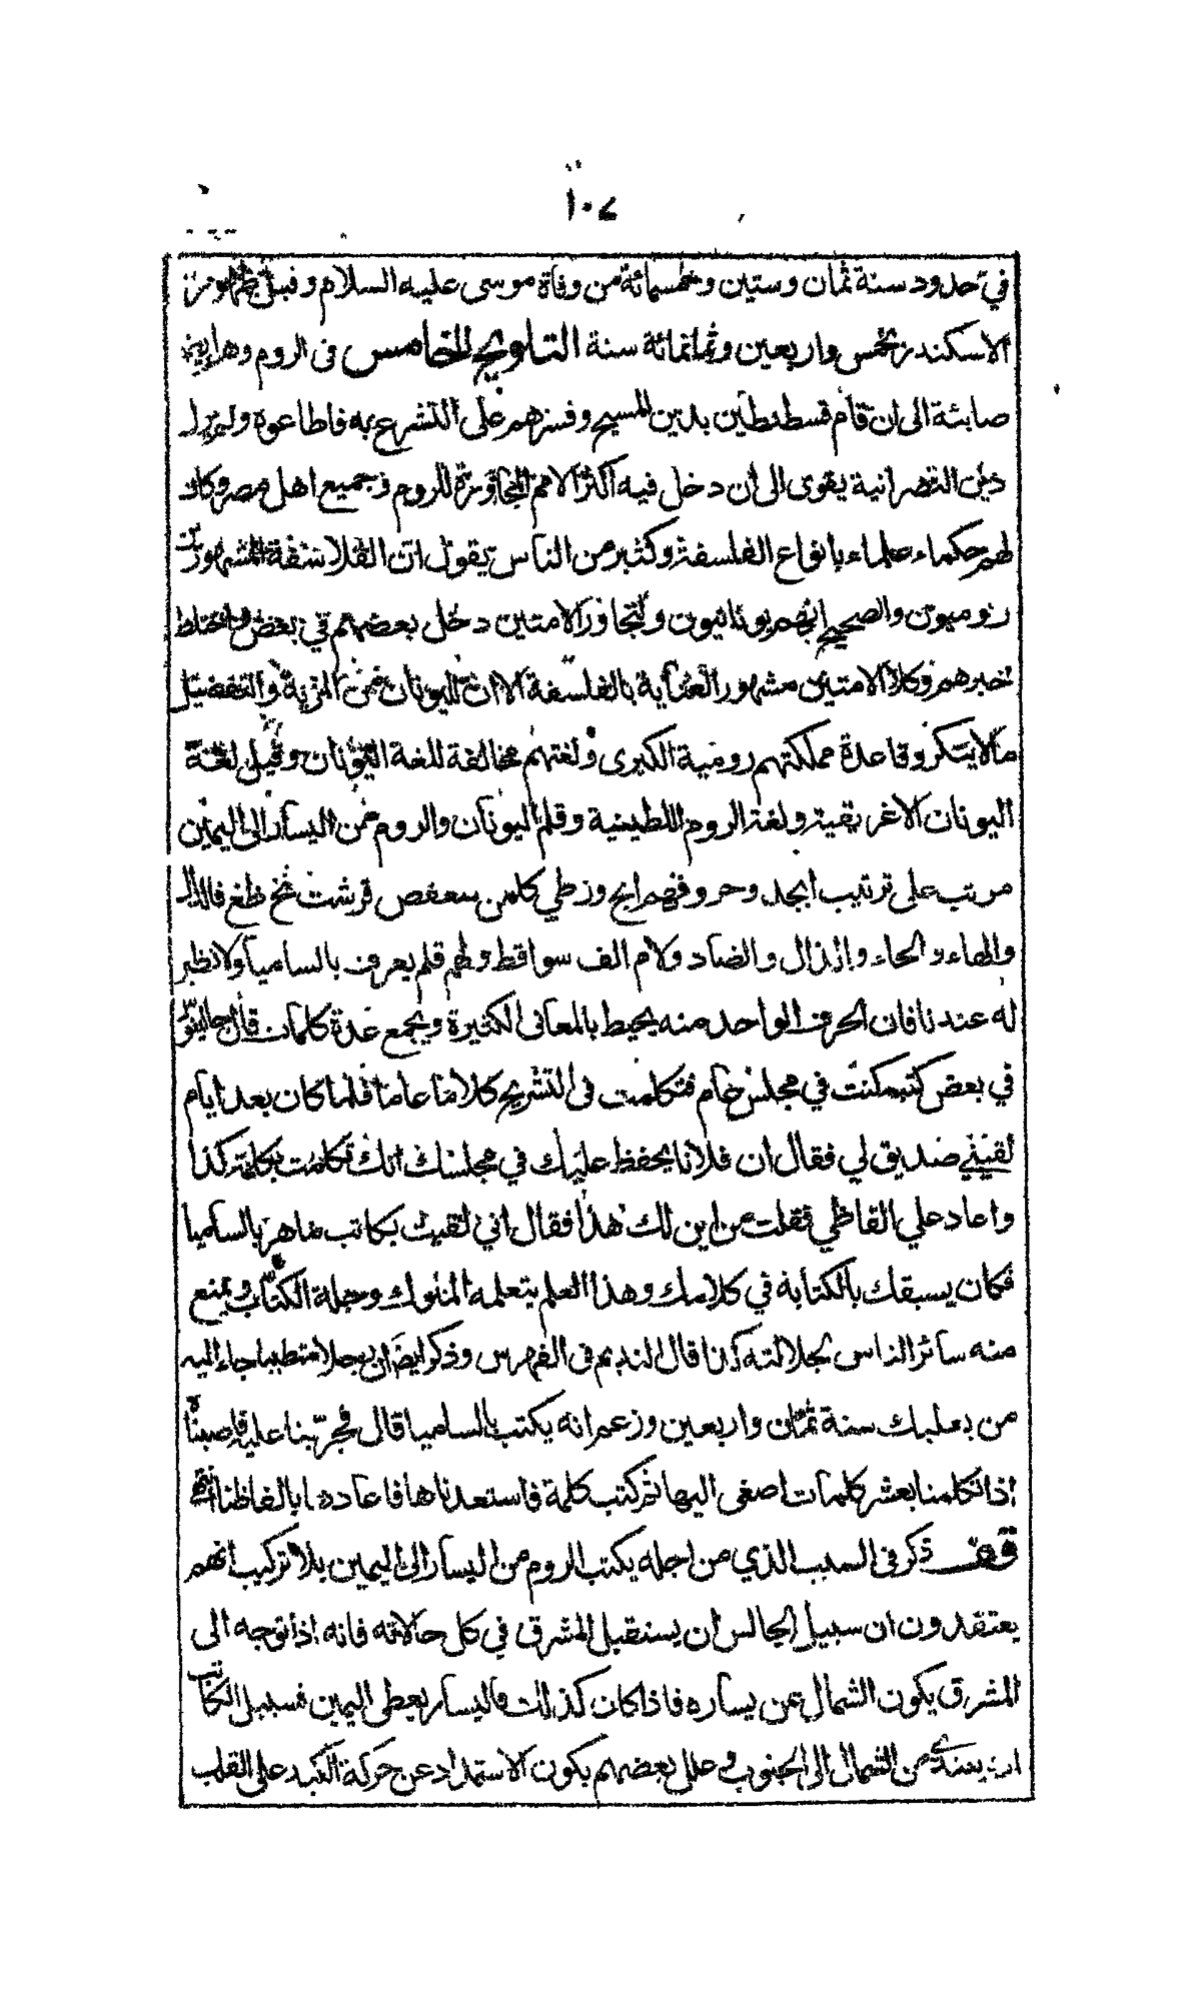 ١٠٧
في حدود سنة ثمان وستين وخمسمائة من وفاة موسى عليه السلام وقبل ظهور
الاسكندر بخمس واربعين وثمانمائة سنة التلويح الخامس في الروم وهم ايضا
صابئة الى ان قام قسطنطين بدين المسيح وقسرهم على التشرع به فاطاعوه ولم يزل
دين النصرانية يقوى الى أن دخل فيه اكثر الامم المجاورة للروم وجميع اهل مصر وكان
لهم حكماء علماء بانواع الفلسفة وكثير من الناس يقول ان الفلاسفة المشهورين
روميون والصحيح انهم يونانيون ولتجاور الامتين دخل بعضهم في بعض واختلط
خبرهم وكلا الامتين مشهور العناية بالفلسفة الا ان لليونان من المزية والتفضيل
ما لا ينكر وقاعدة مملكتهم رومية الكبرى ولغتهم مخالفة للغة اليونان وقيل لغة
اليونان الاغريقية ولغة الروم اللطينية وقلم اليونان والروم من اليسار الى اليمين
مرتب على ترتيب ابجد وحروفهم ابج وزطي كلمن سعفص قرشت ثخ ظغ فالدال
والهاء والحاء والذال والضاد ولام الف سواقط ولهم قلم يعرف بالساميا ولا نظير
له عندنا فان الحرف الواحد منه يحيط بالمعاني الكثيرة ويجمع عدة كلمات قال جالينوس
في بعض كتبه كنت في مجلس عام فتكلمت في التشريح كلاما عاما فلما كان بعد ايام
لقيني صديق لي فقال ان فلانا يحفظ عليك في مجلسك انك تكلمت بكلمة كذا
واعاد علي الفاظي فقلت من اين لك هذا فقال اني لقيت بكاتب ماهر بالساميا
فكان يسبقك بالكتابة في كلامك وهذا العلم يتعلمه الملوك وجلة الكتاب ويمنع
منه سائر الناس لجلالته كذا قال النديم في الفهرس وذكر ايضا ان رجلا متطببا جاء اليه
من بعلبك سنة ثمان واربعين وزعم انه يكتب بالساميا قال فجربنا عليه فاصبناه
اذا تكلمنا بعشر كلمات اصغى اليها ثم كتب كلمة فاستعدناها فاعادها بالفاظنا انتهى
وقف ذكر في السبب الذي من اجله يكتب الروم من اليسار الى اليمين بلا تركيب انهم
يعتقدون ان سبيل الجالس ان يستقبل المشرق في كل حالاته فانه اذا توجه الى
المشرق يكون الشمال عن يساره فاذا كان كذلك فاليسار يعطى اليمين فسبيل الكاتب
ان يبتدئ من الشمال الى الجنوب وعلل بعضهم بكون الاستمداد عن حركة الكبد على القلب